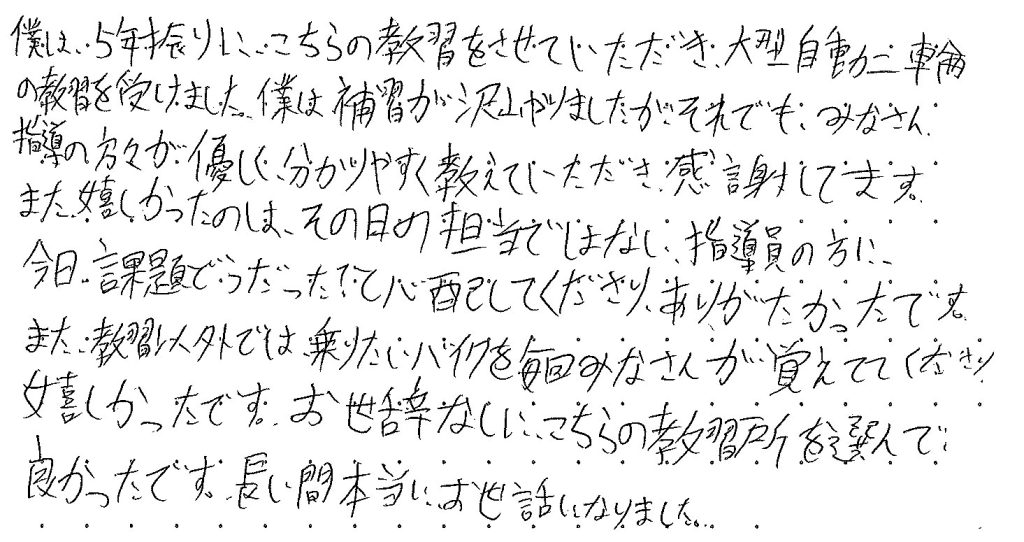 僕は、5年振りに、こちらの教習をさせていただき、大型自動二輪
の教習を受けました。僕は補習が沢山やりましたがそれでも、みなさん
指導の方々が優しく、分かりやすく教えていただき、感謝してます。
また、嬉しかったのは、その日の担当ではない、指導員の方に、
今日、課題どうだった!?て心配してくださり、ありがたかったです。
また、教習以外では、乗りたいバイクを毎回みなさんが覚えててくださり、
嬉しかったです。お世辞なしに、こちらの教習所を選んで、
良かったです。長い間本当にお世話になりました。